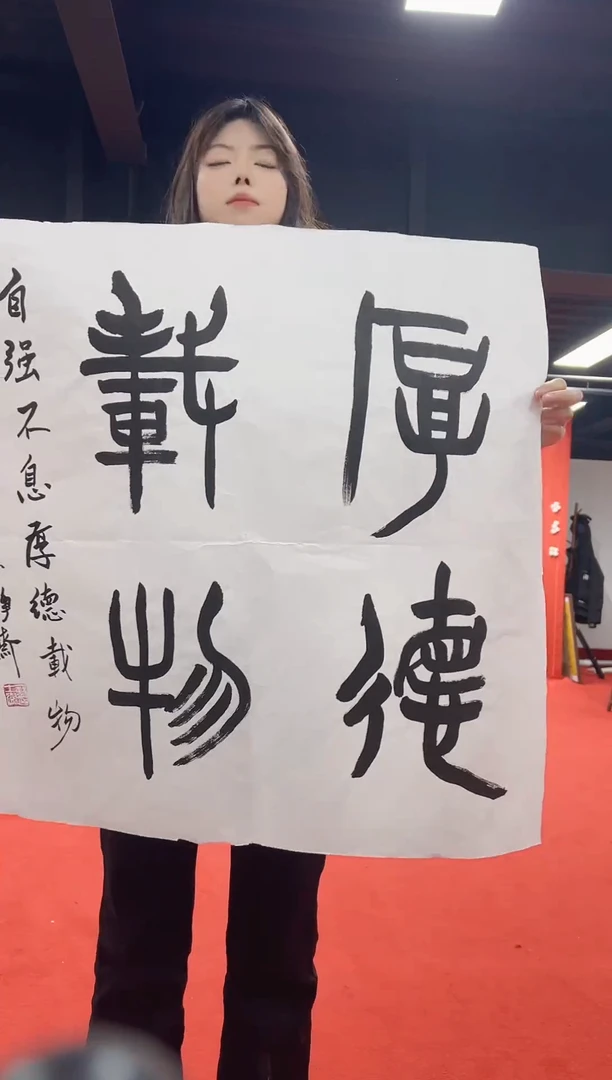 厚德
載物
自强不息厚德載物